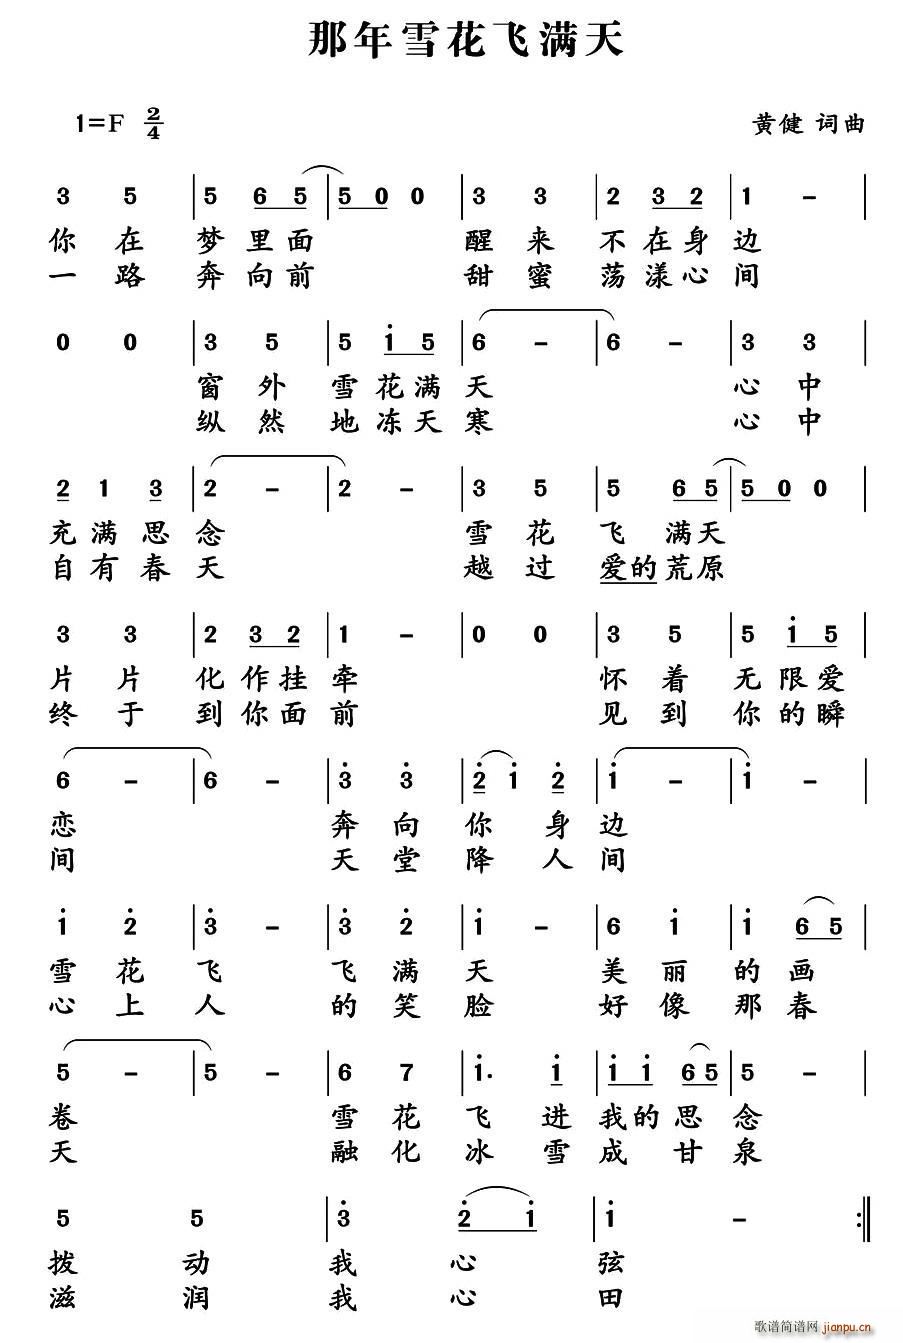 那年雪花飞满天
1=F 2/4
黄健 词曲
3 5 | 5 6 5 | 5 0 0 | 3 3 | 2 3 2 | 1 - |
你在梦里面 醒来不在身边
一路奔向前 甜蜜荡漾心间
0 0 | 3 5 | 5 i 5 | 6 - | 6 - | 3 3 |
窗外雪花满天 心中
纵然地冻天寒 心中
2 1 3 | 2 - | 2 - | 3 5 | 5 6 5 | 5 0 0 |
充满思念 雪花飞满天
自有春天 越过爱的荒原
3 3 | 2 3 2 | 1 - | 0 0 | 3 5 | 5 i 5 |
片片化作挂牵 怀着无限爱
终于到你面前 见到你的瞬
6 - | 6 - | 3̇ 3̇ | 2̇ i 2̇ | i - | i - |
恋 奔向你身边
间 天堂降人间
i 2̇ | 3̇ - | 3̇ 2̇ | i - | 6 i | i 6 5 |
雪花飞飞满天美丽的画
心上人的笑脸好像那春
5 - | 5 - | 6 7 | i· i | i i 6 5 | 5 - |
卷 雪花飞进我的思念
天 融化冰雪成甘泉
5 5 | 3̇ | 2̇ i | i - :|
拨动我心弦
滋润我心田
歌谱简谱网
jianpu.cn